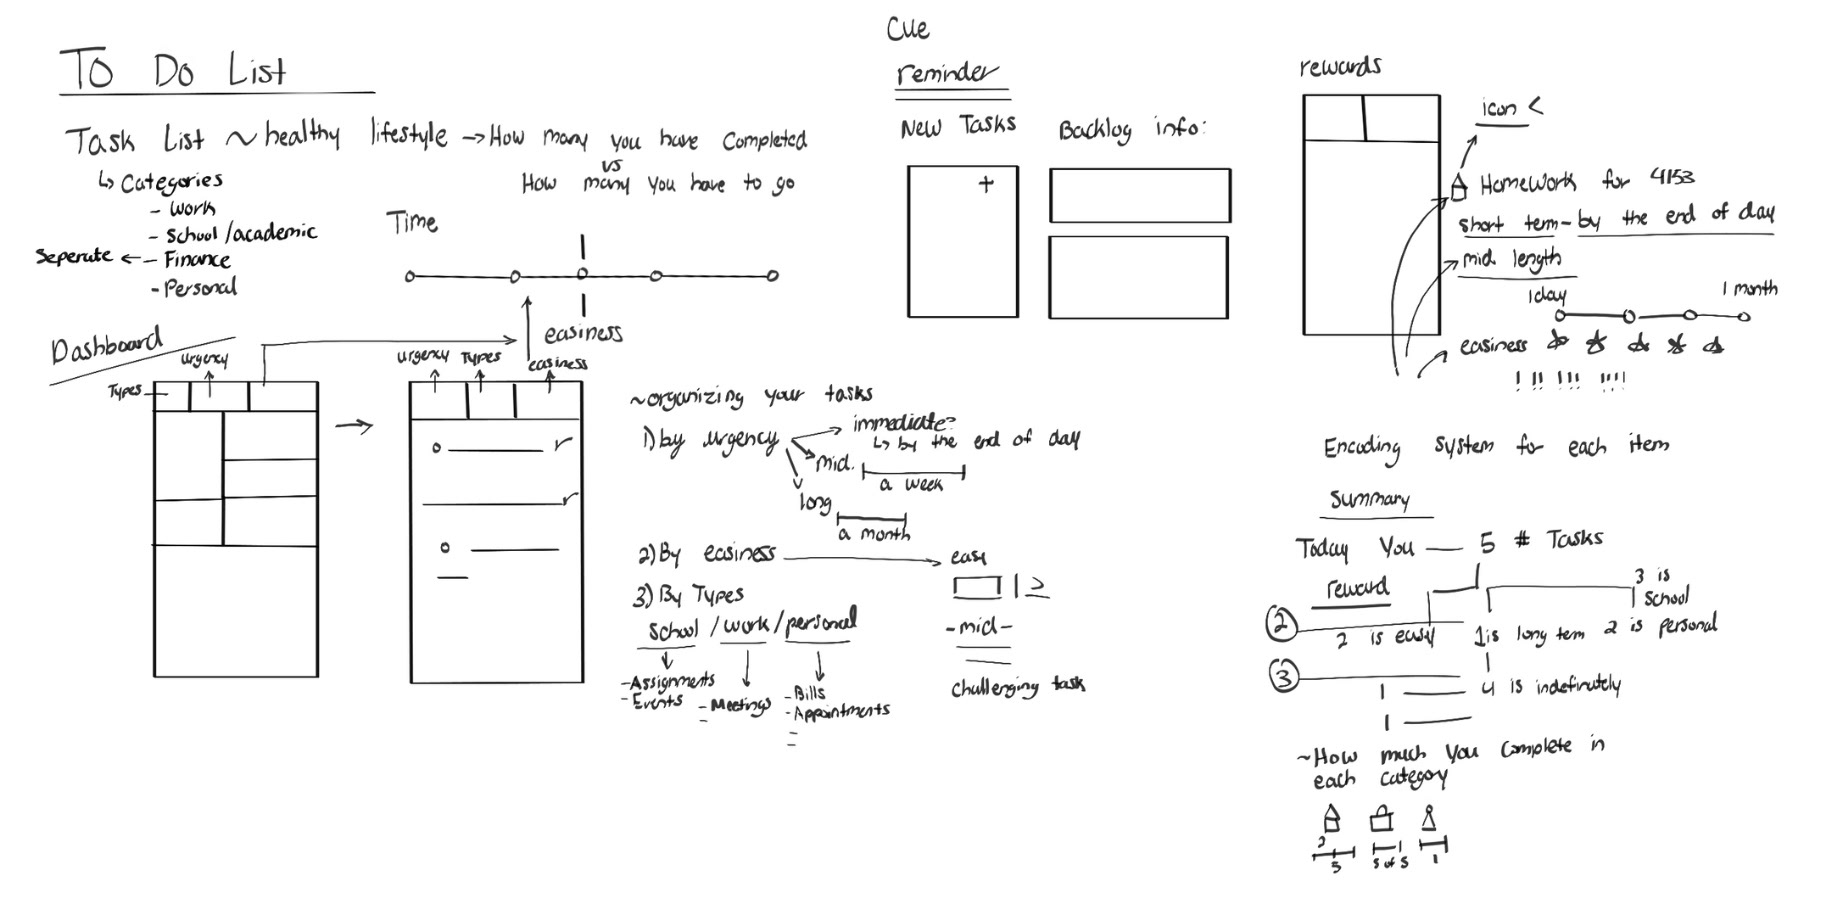 To Do List
Task List ~ healthy lifestyle → How many you have completed
vs
How many you have to go
↳ Categories
- Work
- School/academic
Seperate ← - Finance
- Personal
Time
easiness
Dashboard
urgency
Types
urgency Types easiness
~organizing your tasks
1) by urgency
immediate?
↳ by the end of day
mid.
a week
long
a month
2) By easiness
easy
3) By Types
School / work / personal
- Assignments
- Events
- Meetings
-
- Bills
- Appointments
-
-
-mid-
challenging task
Cue
reminder
New Tasks
+
Backlog info:
rewards
icon <
HomeWork for 4153
short term - by the end of day
mid length
1 day
1 month
easiness
! !! !!! !!!!
Encoding system for each item
Summary
Today You — 5 # Tasks
reward
3 is School
2 is personal
2
2 is easy
1 is long tem
3
1
4 is indefinutely
1
~How much you complete in
each category
2
5
5 of 5
1